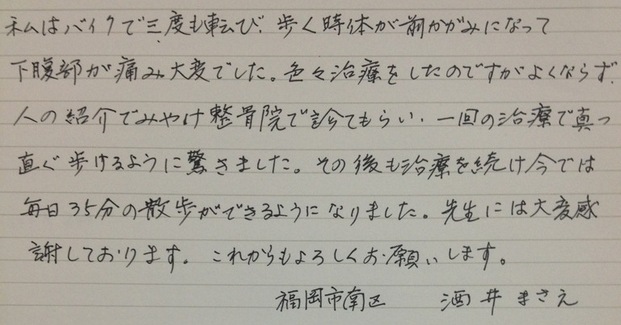 私はバイクで三度も転び、歩く時体が前かがみになって
下腹部が痛み大変でした。色々治療をしたのですがよくならず、
人の紹介でみやけ整骨院で診てもらい、一回の治療で真っ
直ぐ歩けるように驚きました。その後も治療を続け今では
毎日35分の散歩ができるようになりました。先生には大変感
謝しております。これからもよろしくお願いします。
福岡市南区 酒井まさえ